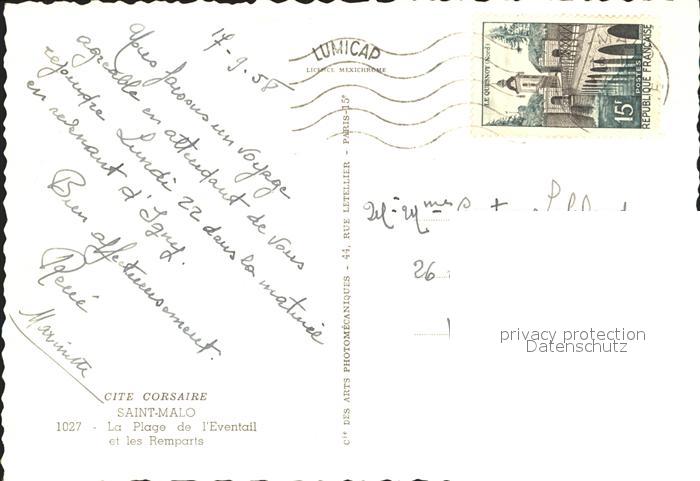 17-9-58
Nous faisons un voyage
agréable en attendant de vous
rejoindre Lundi 22 dans la matinée
en revenant d'Igny.
Bien affectueusement.
René
CITE CORSAIRE
SAINT-MALO
1027 - La Plage de l'Eventail
et les Remparts
LUMICAP
LICENCE MEXICHROME
Cie DES ARTS PHOTOMÉCANIQUES - 44, RUE LETELLIER - PARIS-15e
LE QUESNOY (Nord)
15F
POSTES
REPUBLIQUE FRANÇAISE
26
privacy protection
Datenschutz